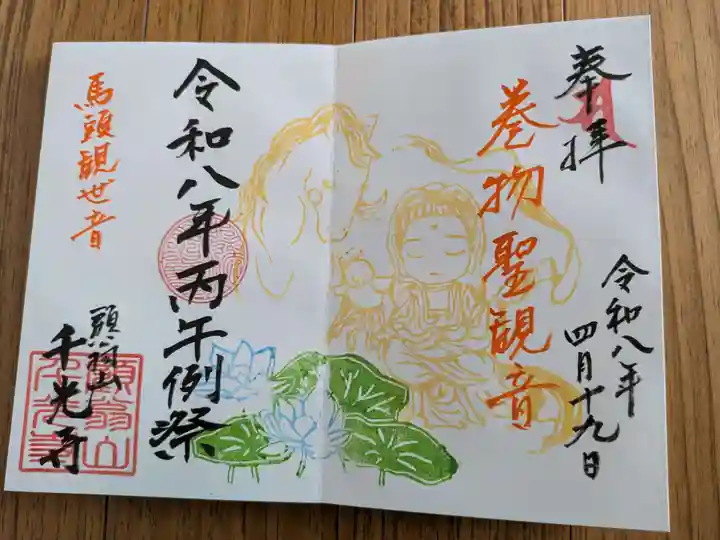 奉拝
巻物聖観音
令和八年
四月十九日
令和八年丙午例祭
馬頭観世音
頭翁山
千光寺